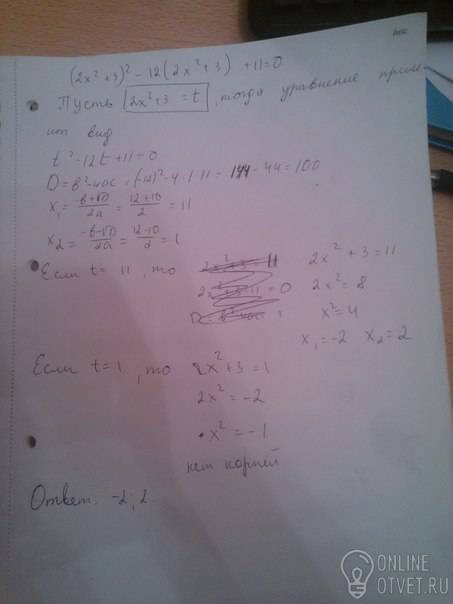 (2x²+3)² - 12(2x²+3) + 11 = 0
Пусть 2x²+3 = t, тогда уравнение прим
ит вид
t² - 12t + 11 = 0
D = b² - 4ac = (-12)² - 4·1·11 = 144 - 44 = 100
x₁ = -b+√D/2a = 12+10/2 = 11
x₂ = -b-√D/2a = 12-10/2 = 1
Если t = 11, то
2x² + 3 = 11
2x² = 8
x² = 4
x₁ = -2 x₂ = 2
Если t = 1, то 2x² + 3 = 1
2x² = -2
x² = -1
нет корней
Ответ: -2; 2
ONLINE
OTVET.RU